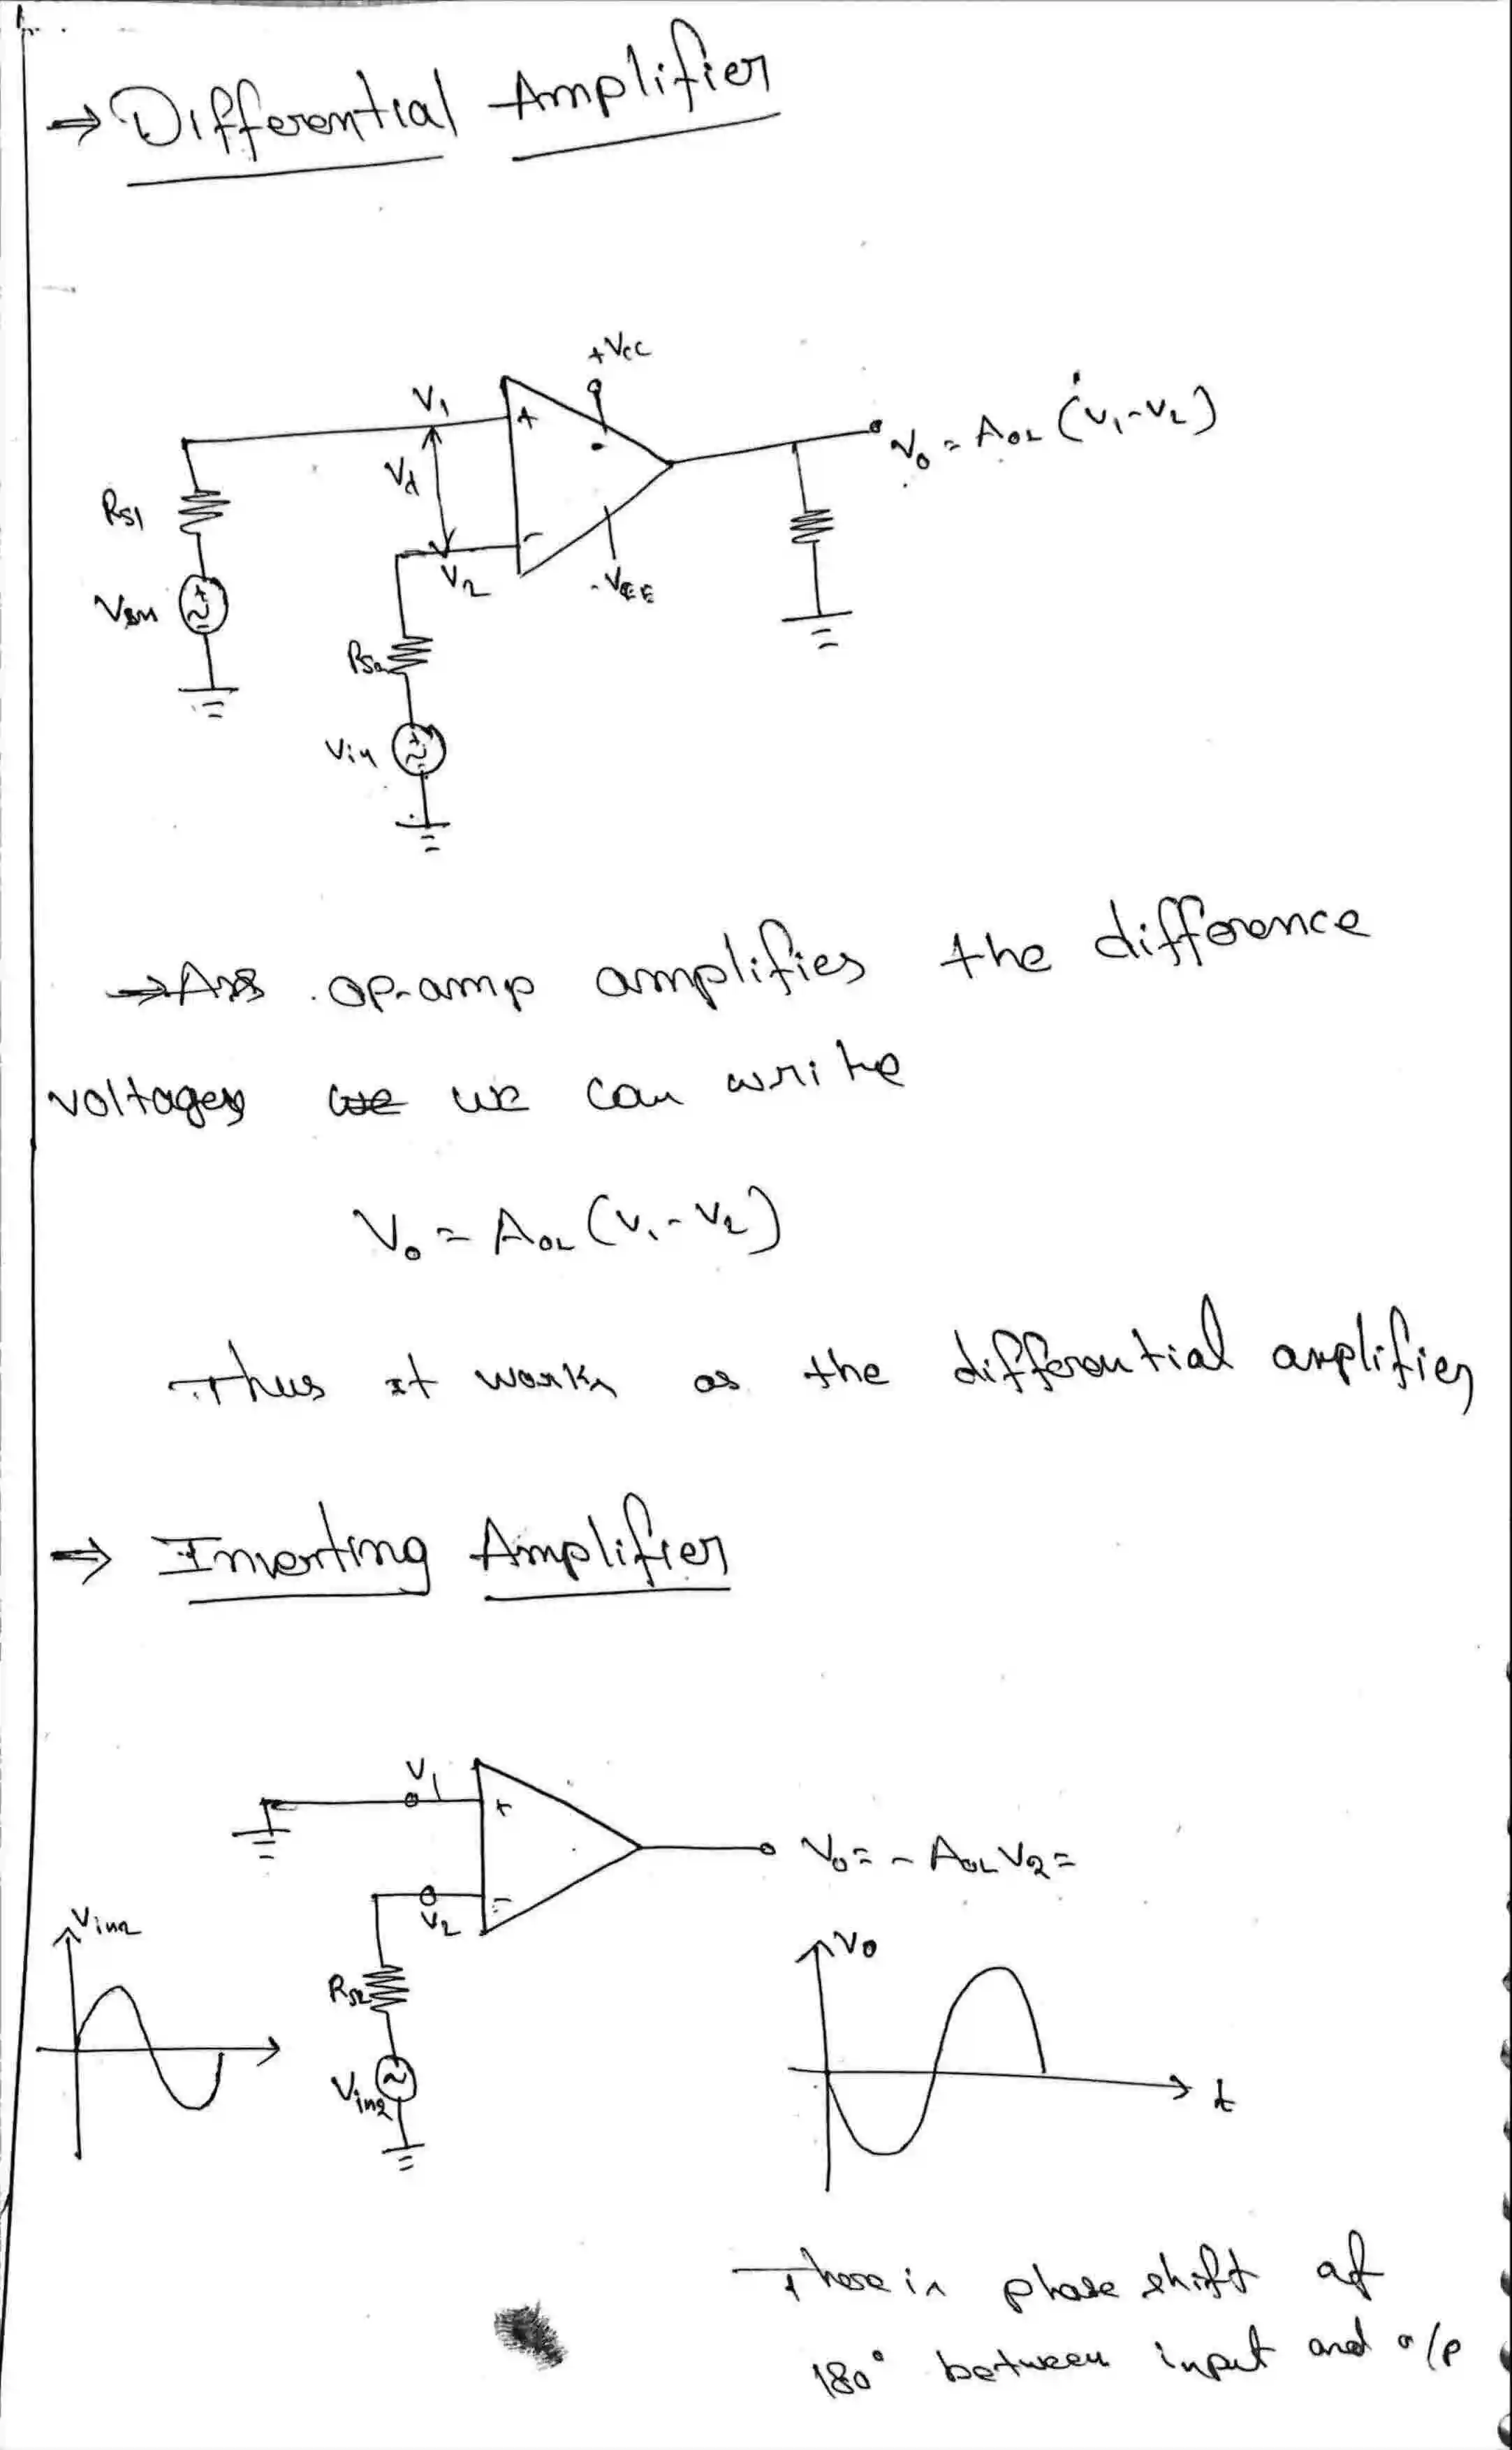 ⇒ Differential Amplifier
+Vcc
V1
+
Vd
V0 = AOL (V1-V2)
RS1
-
V2
-VEE
+
RS2
Vin
+
→ As op-amp amplifies the difference
voltages we we can write
V0 = AOL (V1-V2)
Thus it works as the differential amplifier
⇒ Inverting Amplifier
V1
+
V0 = - AOL V2 =
-
V2
Vin2
V0
RS2
Vin2
t
There is phase shift of
180° between input and o/p